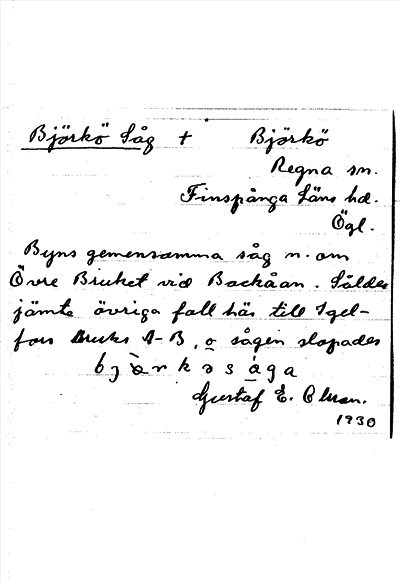 Björkö Såg † Björkö
Regna sn.
Finspånga Läns hd.
Ögl.
Byns gemensamma såg n. om
Övre Bruket vid Backåan. Såldes
jämte övriga fall här till Igel-
fors Bruks A-B, o sågen slopades
Gustaf E.
1930